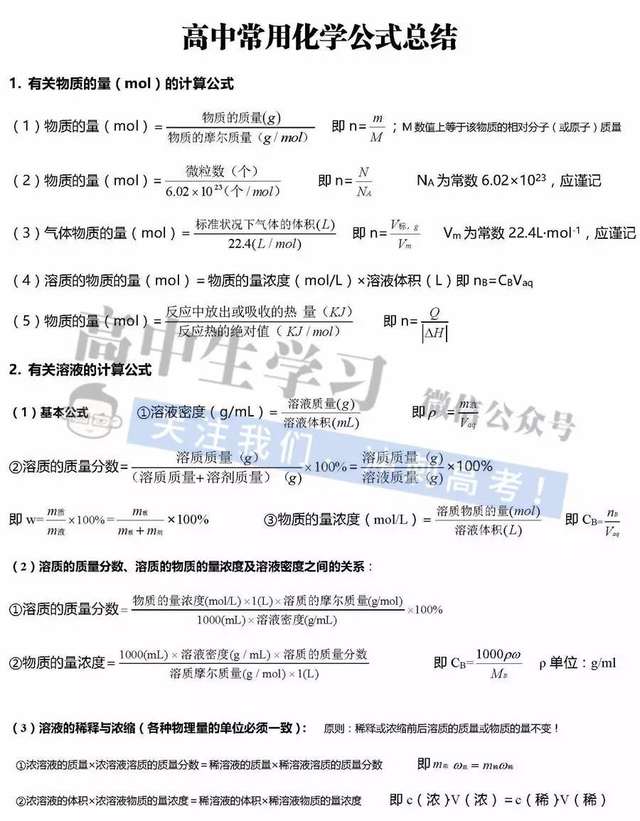 高中常用化学公式总结
1. 有关物质的量（mol）的计算公式
（1）物质的量（mol）= 物质的质量(g) / 物质的摩尔质量（g / mol） 即 n= m / M ；M 数值上等于该物质的相对分子（或原子）质量
（2）物质的量（mol）= 微粒数（个） / 6.02×10²³(个 / mol) 即 n= N / NA NA 为常数 6.02×10²³，应谨记
（3）气体物质的量（mol）= 标准状况下气体的体积(L) / 22.4(L / mol) 即 n= V标，g / Vm Vm 为常数 22.4L·mol⁻¹，应谨记
（4）溶质的物质的量（mol）＝物质的量浓度（mol/L）×溶液体积（L）即 nB=CBVaq
（5）物质的量（mol）= 反应中放出或吸收的热 量（KJ） / 反应热的绝对值（ KJ / mol） 即 n= Q / |ΔH|
高中生学习
微信公众号
关注我们，
高考！
2. 有关溶液的计算公式
（1）基本公式 ①溶液密度（g/mL）= 溶液质量(g) / 溶液体积(mL) 即 ρ = m液 / Vaq
②溶质的质量分数= 溶质质量（g） / （溶质质量+ 溶剂质量）(g) ×100%= 溶质质量（g） / 溶液质量（g） ×100%
即 w= m质 / m液 ×100%= m质 / m质 + m剂 ×100% ③物质的量浓度（mol/L）= 溶质物质的量(mol) / 溶液体积(L) 即 CB= nB / Vaq
（2）溶质的质量分数、溶质的物质的量浓度及溶液密度之间的关系：
①溶质的质量分数= 物质的量浓度(mol/L)×1(L)×溶质的摩尔质量(g/mol) / 1000(mL)×溶液密度(g/mL) ×100%
②物质的量浓度= 1000(mL)×溶液密度(g / mL)×溶质的质量分数 / 溶质摩尔质量(g / mol)×1(L) 即 CB= 1000ρω / MB ρ 单位：g/ml
（3）溶液的稀释与浓缩（各种物理量的单位必须一致）： 原则：稀释或浓缩前后溶质的质量或物质的量不变！
①浓溶液的质量×浓溶液溶质的质量分数＝稀溶液的质量×稀溶液溶质的质量分数 即 m浓 ω浓 = m稀ω稀
②浓溶液的体积×浓溶液物质的量浓度＝稀溶液的体积×稀溶液物质的量浓度 即 c（浓）V（浓）＝c（稀）V（稀）